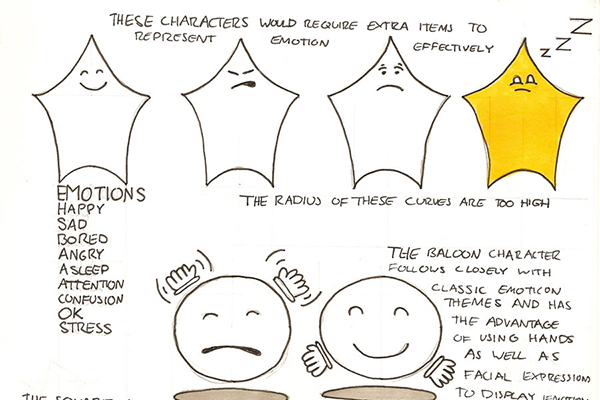 THESE CHARACTERS WOULD REQUIRE EXTRA ITEMS TO
REPRESENT EMOTION EFFECTIVELY
Z Z Z
EMOTIONS
HAPPY
SAD
BORED
ANGRY
ASLEEP
ATTENTION
CONFUSION
OK
STRESS
THE RADIUS OF THESE CURVES ARE TOO HIGH
THE BALOON CHARACTER
FOLLOWS CLOSELY WITH
CLASSIC EMOTICON
THEMES AND HAS
THE ADVANTAGE
OF USING HANDS
AS WELL AS
FACIAL EXPRESSIONS
TO DISPLAY EMOTION
THE SQUARE